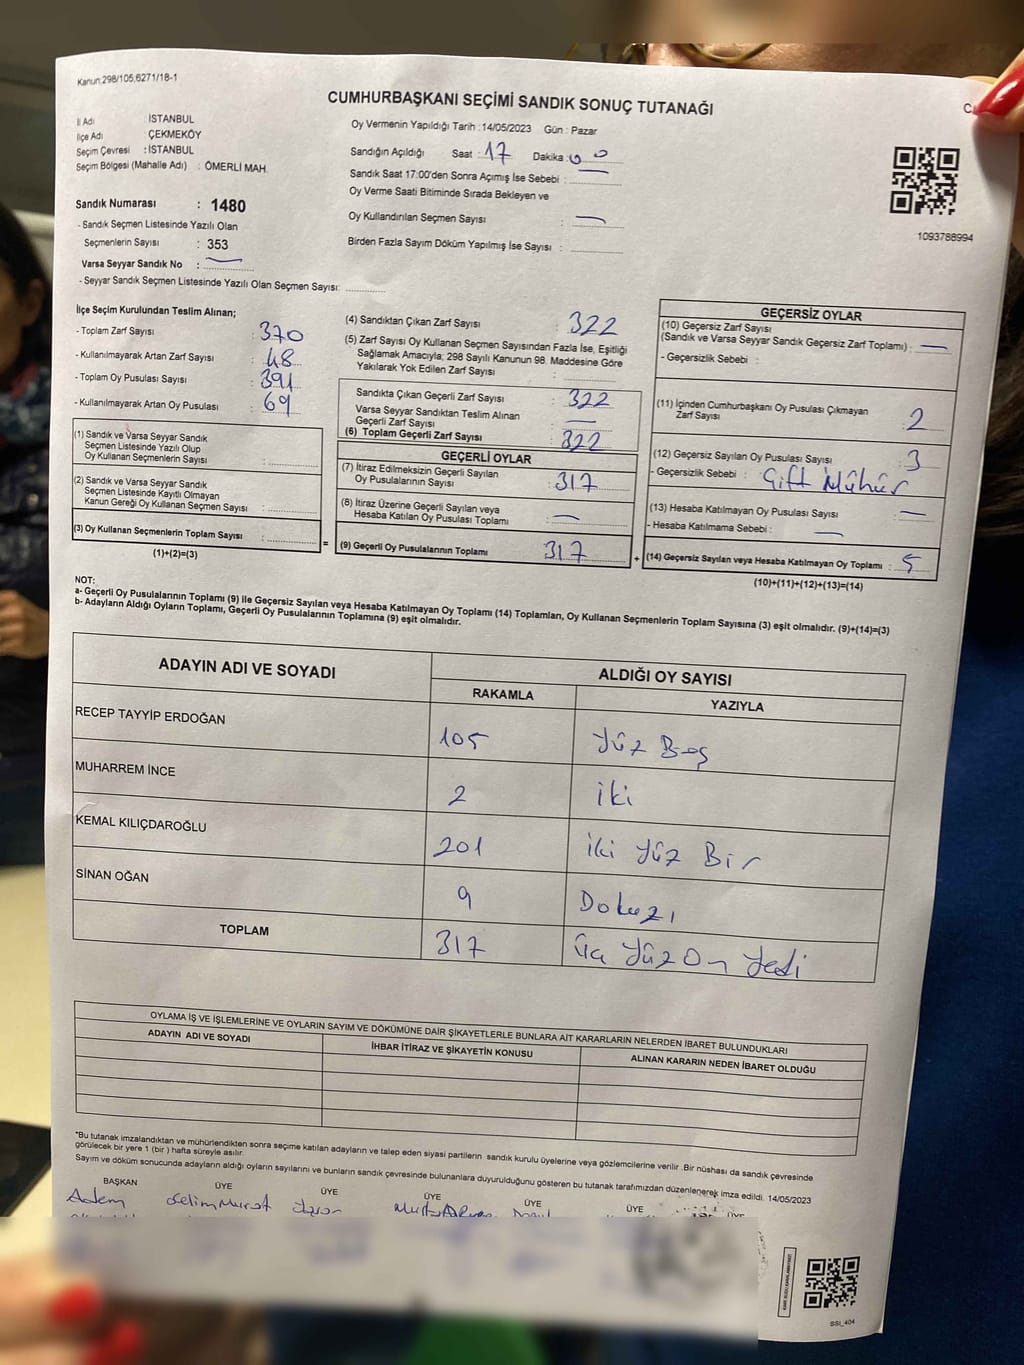 Kanun:298/105,6271/18-1
CUMHURBAŞKANI SEÇİMİ SANDIK SONUÇ TUTANAĞI
İl Adı : İSTANBUL
İlçe Adı : ÇEKMEKÖY
Seçim Çevresi : İSTANBUL
Seçim Bölgesi (Mahalle Adı) : ÖMERLİ MAH.
Sandık Numarası : 1480
- Sandık Seçmen Listesinde Yazılı Olan
Seçmenlerin Sayısı : 353
Varsa Seyyar Sandık No : —
- Seyyar Sandık Seçmen Listesinde Yazılı Olan Seçmen Sayısı:
Oy Vermenin Yapıldığı Tarih :14/05/2023 Gün : Pazar
Sandığın Açıldığı Saat : 17 Dakika : 00
Sandık Saat 17:00'den Sonra Açımış İse Sebebi : —
Oy Verme Saati Bitiminde Sırada Bekleyen ve
Oy Kullandırılan Seçmen Sayısı : —
Birden Fazla Sayım Döküm Yapılmış İse Sayısı :
1093788994
İlçe Seçim Kurulundan Teslim Alınan;
- Toplam Zarf Sayısı : 370
- Kullanılmayarak Artan Zarf Sayısı : 48
- Toplam Oy Pusulası Sayısı : 391
- Kullanılmayarak Artan Oy Pusulası : 69
(1) Sandık ve Varsa Seyyar Sandık
Seçmen Listesinde Yazılı Olup
Oy Kullanan Seçmenlerin Sayısı :
(2) Sandık ve Varsa Seyyar Sandık
Seçmen Listesinde Kayıtlı Olmayan
Kanun Gereği Oy Kullanan Seçmen Sayısı :
(3) Oy Kullanan Seçmenlerin Toplam Sayısı :
(1)+(2)=(3)
=
(4) Sandıktan Çıkan Zarf Sayısı : 322
(5) Zarf Sayısı Oy Kullanan Seçmen Sayısından Fazla İse, Eşitliği
Sağlamak Amacıyla; 298 Sayılı Kanunun 98. Maddesine Göre
Yakılarak Yok Edilen Zarf Sayısı :
Sandıkta Çıkan Geçerli Zarf Sayısı : 322
Varsa Seyyar Sandıktan Teslim Alınan
Geçerli Zarf Sayısı : —
(6) Toplam Geçerli Zarf Sayısı : 322
GEÇERLİ OYLAR
(7) İtiraz Edilmeksizin Geçerli Sayılan
Oy Pusulalarının Sayısı : 317
(8) İtiraz Üzerine Geçerli Sayılan veya
Hesaba Katılan Oy Pusulası Toplamı : —
(9) Geçerli Oy Pusulalarının Toplamı : 317
+
GEÇERSİZ OYLAR
(10) Geçersiz Zarf Sayısı
(Sandık ve Varsa Seyyar Sandık Geçersiz Zarf Toplamı) : —
- Geçersizlik Sebebi :
(11) İçinden Cumhurbaşkanı Oy Pusulası Çıkmayan
Zarf Sayısı : 2
(12) Geçersiz Sayılan Oy Pusulası Sayısı : 3
- Geçersizlik Sebebi : Çift Mühür
(13) Hesaba Katılmayan Oy Pusulası Sayısı : —
- Hesaba Katılmama Sebebi : —
(14) Geçersiz Sayılan veya Hesaba Katılmayan Oy Toplamı : 5
(10)+(11)+(12)+(13)=(14)
NOT:
a- Geçerli Oy Pusulalarının Toplamı (9) ile Geçersiz Sayılan veya Hesaba Katılmayan Oy Toplamı (14) Toplamları, Oy Kullanan Seçmenlerin Toplam Sayısına (3) eşit olmalıdır. (9)+(14)=(3)
b- Adayların Aldığı Oyların Toplamı, Geçerli Oy Pusulalarının Toplamına (9) eşit olmalıdır.
ADAYIN ADI VE SOYADI ALDIĞI OY SAYISI
RAKAMLA YAZIYLA
RECEP TAYYİP ERDOĞAN 105 Yüz Beş
MUHARREM İNCE 2 iki
KEMAL KILIÇDAROĞLU 201 iki Yüz Bir
SİNAN OĞAN 9 Dokuz
TOPLAM 317 Üç Yüz On Yedi
OYLAMA İŞ VE İŞLEMLERİNE VE OYLARIN SAYIM VE DÖKÜMÜNE DAİR ŞİKAYETLERLE BUNLARA AİT KARARLARIN NELERDEN İBARET BULUNDUKLARI
ADAYIN ADI VE SOYADI İHBAR İTİRAZ VE ŞİKAYETİN KONUSU ALINAN KARARIN NEDEN İBARET OLDUĞU
*Bu tutanak imzalandıktan ve mühürlendikten sonra seçime katılan adayların ve talep eden siyasi partilerin sandık kurulu üyelerine veya gözlemcilerine verilir .Bir nüshası da sandık çevresinde
görülecek bir yere 1 (bir ) hafta süreyle asılır.
Sayım ve döküm sonucunda adayların aldığı oyların sayılarını ve bunların sandık çevresinde bulunanlara duyurulduğunu gösteren bu tutanak tarafımızdan düzenlenerek imza edildi. 14/05/2023
BAŞKAN ÜYE ÜYE ÜYE ÜYE ÜYE ÜYE
Adem Selim Murat
SSI_404